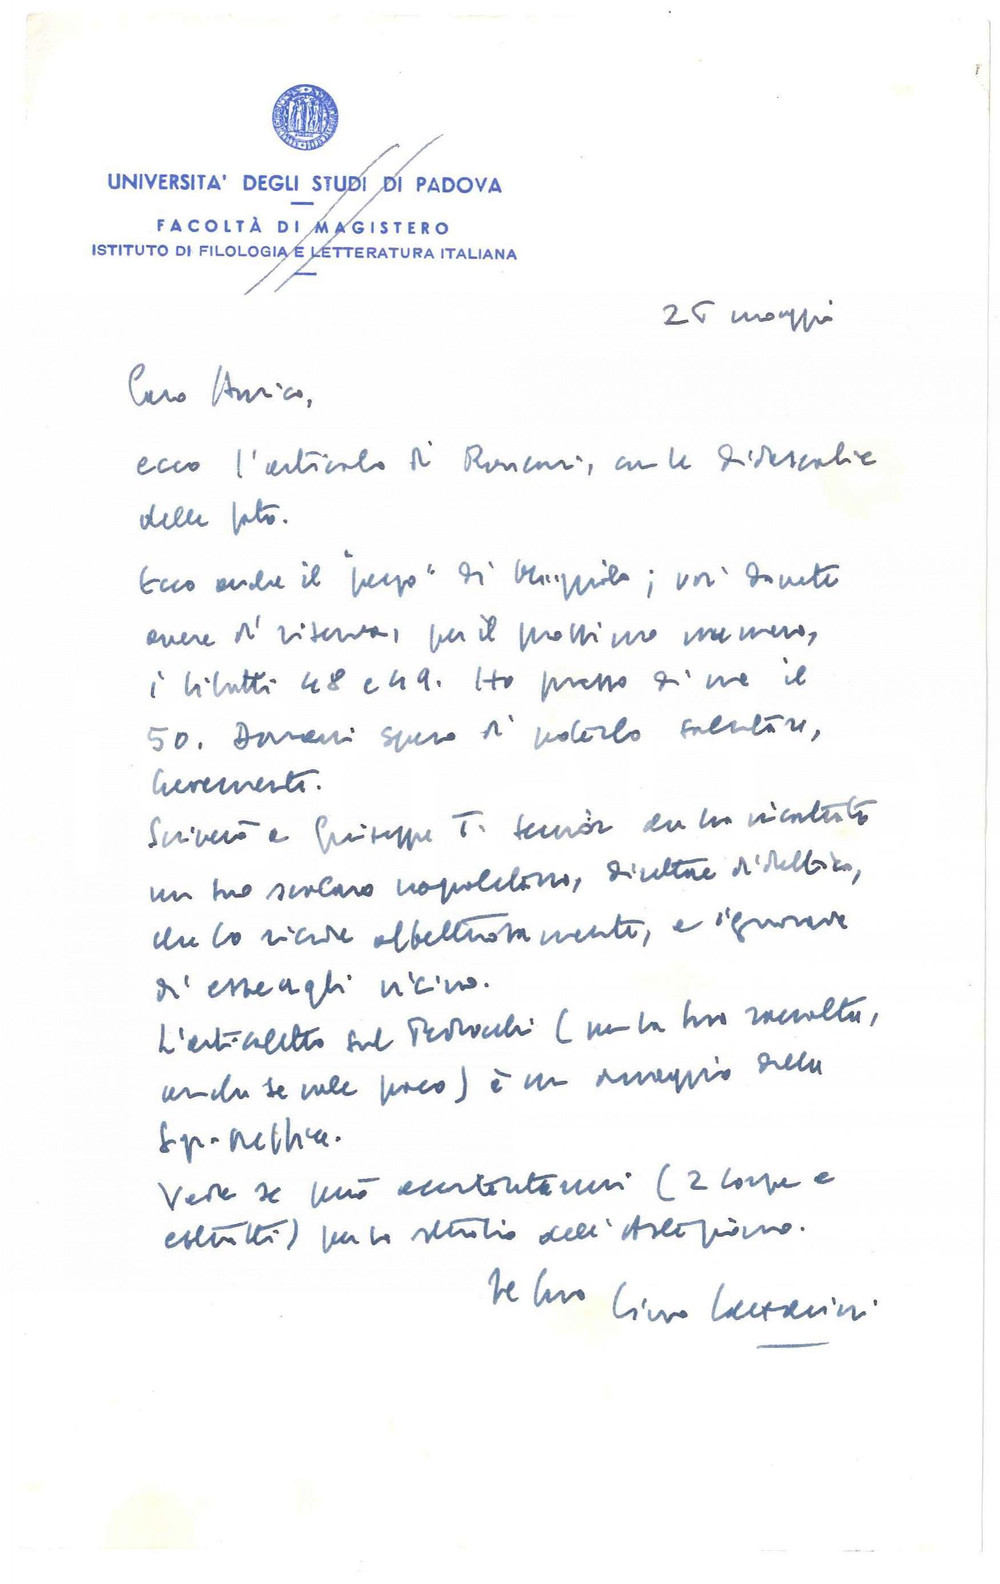 UNIVERSITA' DEGLI STUDI DI PADOVA
FACOLTÀ DI MAGISTERO
ISTITUTO DI FILOLOGIA E LETTERATURA ITALIANA
25 maggio
Caro Amico,
ecco l'articolo di Ronconi, con le didascalie
delle foto.
Ecco anche il "pezzo" di ; voi dovete
avere di riserva, per il prossimo numero,
i libretti 48 e 49. Ho presso di me il
50. Domani spero di poterlo salutare,
brevemente.
Scriverò a Giuseppe T. senior che ha incontrato
un suo scolaro napoletano, direttore d'
che lo ricorda affettuosamente, e ignorava
di essergli vicino.
L'articoletto sul Pedrocchi (per la sua raccolta,
anche se vale poco) è un omaggio della
Veda se può accontentarmi (2 copie e
estratti) per lo studio dell'
Suo
Lino Lazzarini